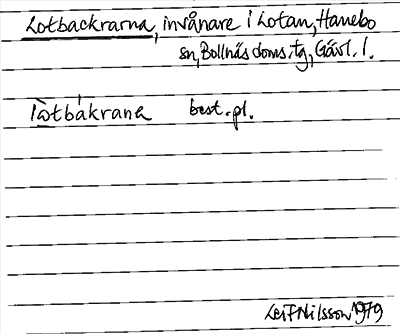 Lotbackrarna, invånare i Lotan, Hanebo
sn, Bollnäs doms. tg, Gävl. l.
lòtbákrana best. pl.
Leif Nilsson 1979